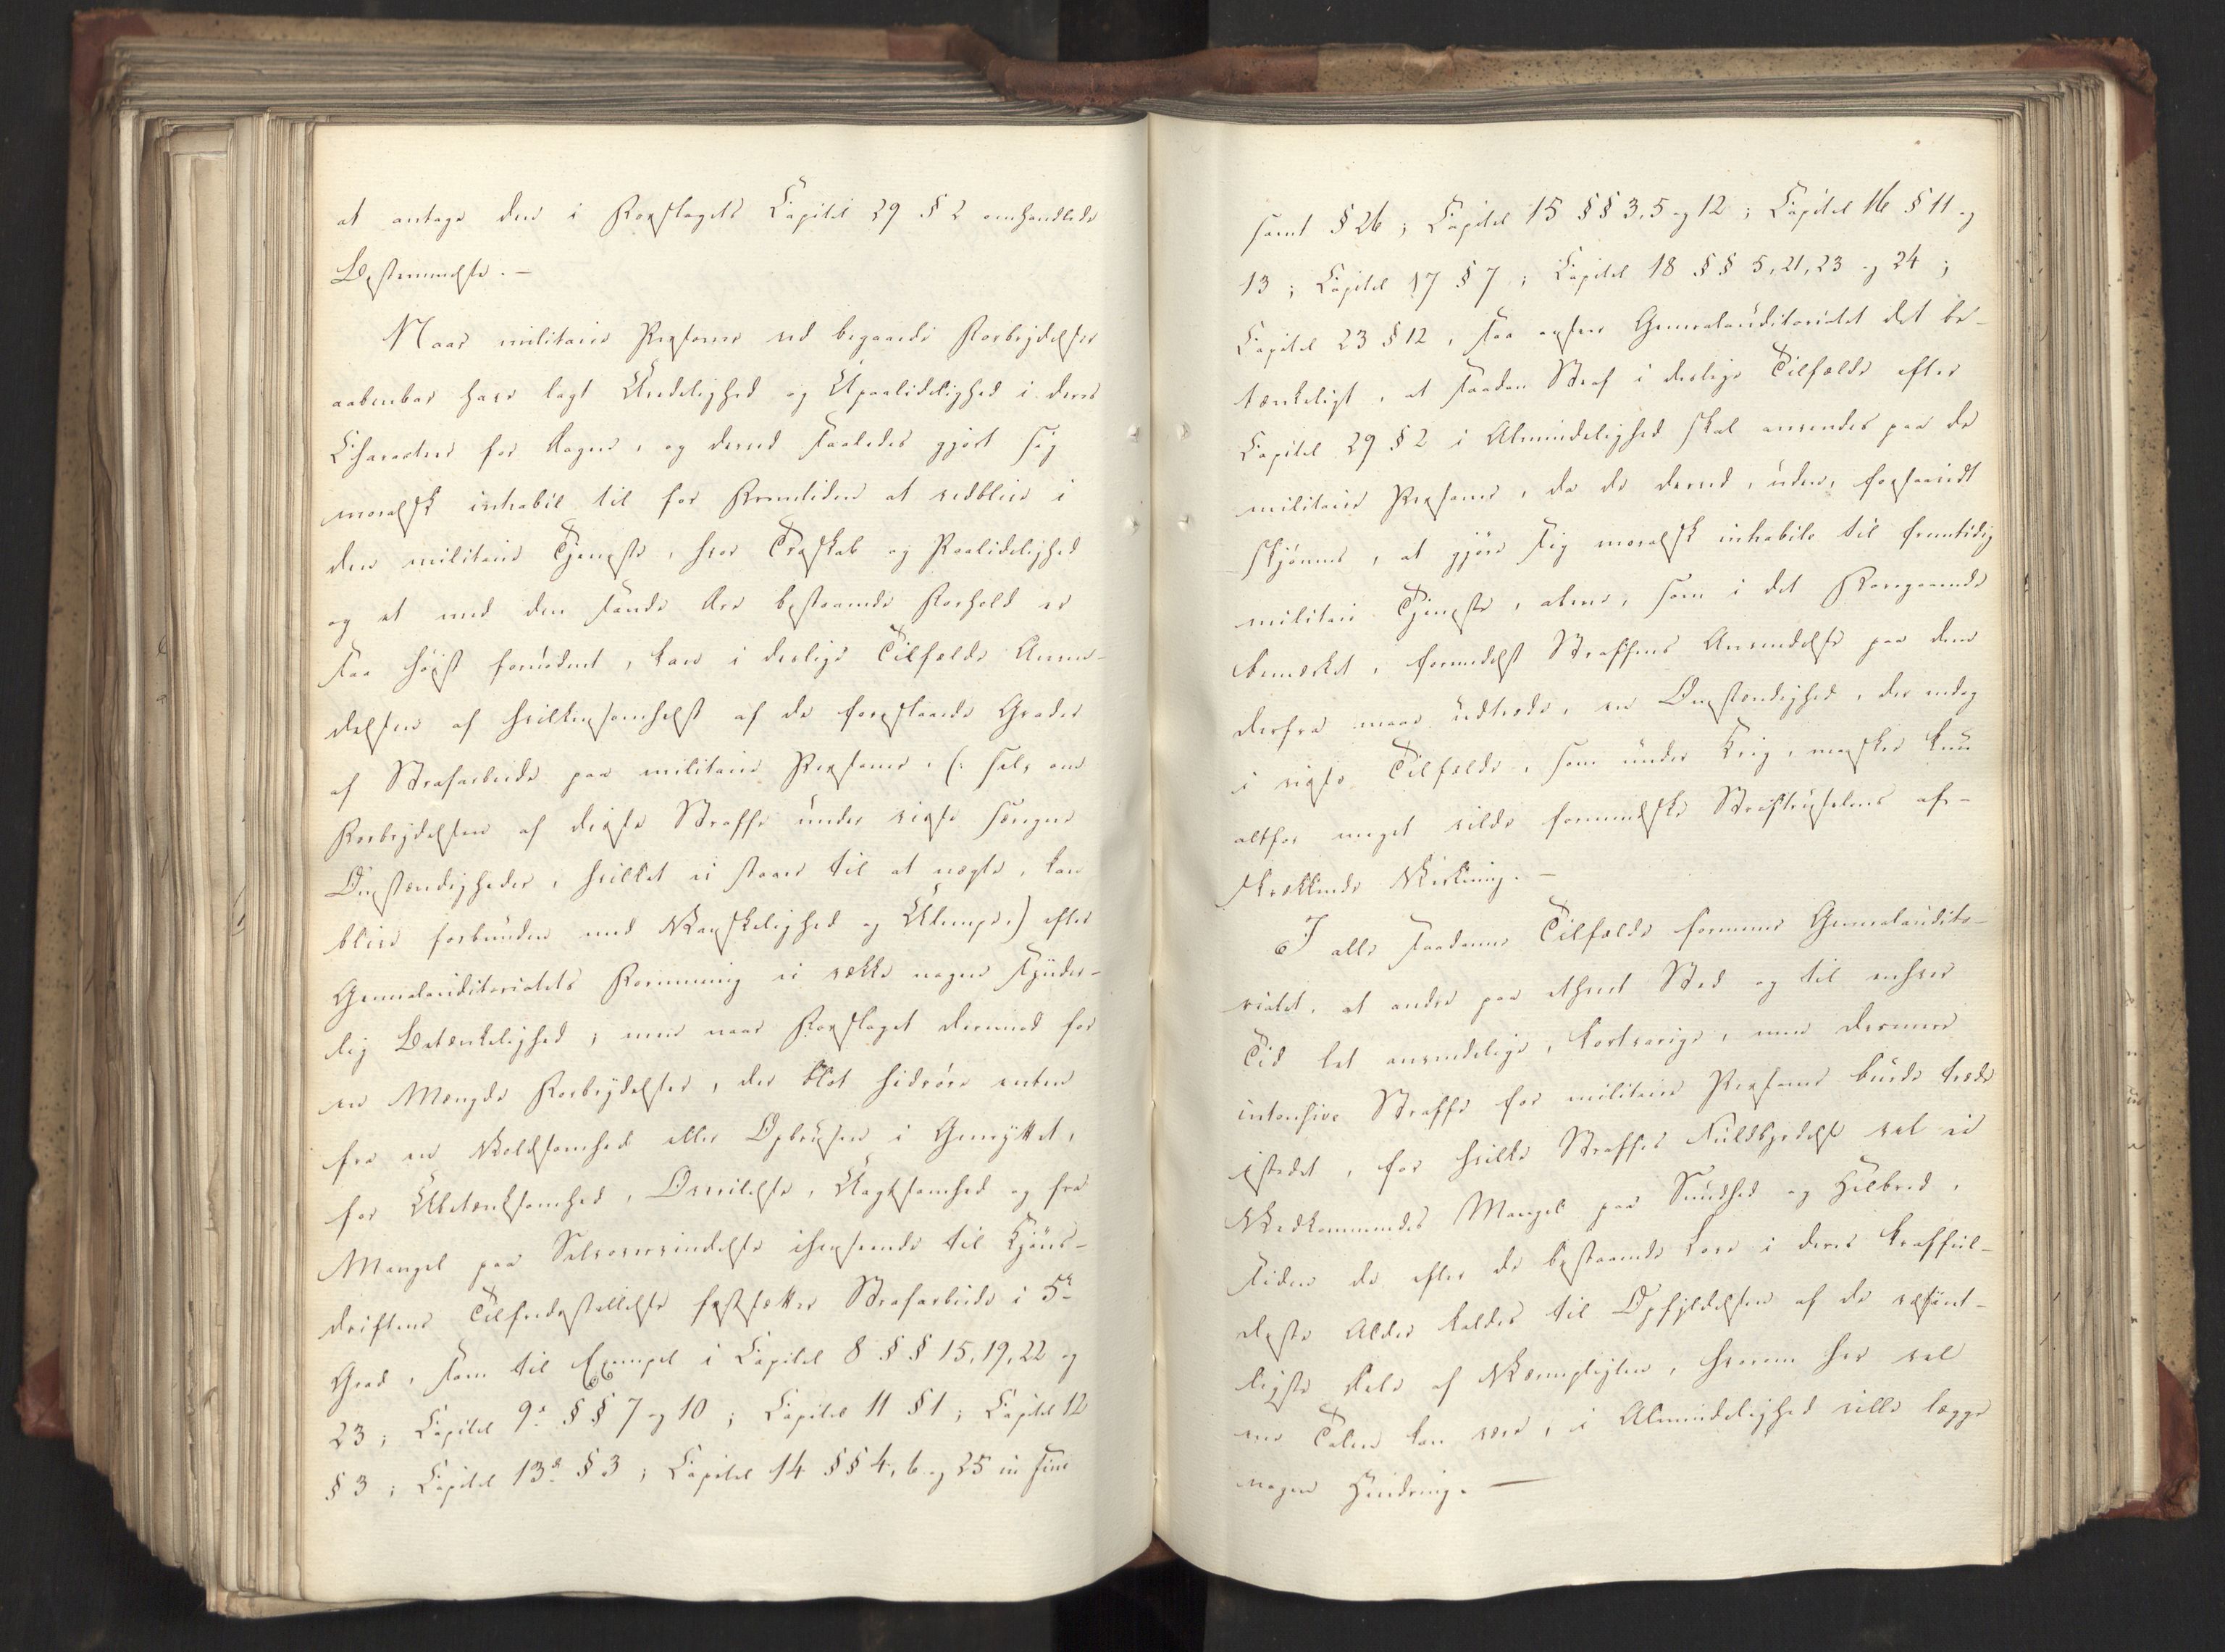 at antage den i Forslagets Capitel 29 § 2 omhandlede
Bestemmelse. —
Naar militaire Personer ved begaaede Forbrydelser
aabenbar have lagt Uredelighed og Upaalidelighed i deres
Characteer for Dagen, og derved saaledes gjort sig
moralsk inhabil til for Fremtiden at vedblive i
den militaire Tjeneste, hvor Troskab og Paalidelighed
og et med den sande Ære bestaaende Forhold er
saa høist fornødent, kan i deslige Tilfælde Anven-
delsen af hvilkensomhelst af de foreslaaede Grader
af Strafarbeide paa militaire Personer, (: selv om
Forbrydelsen af disse Straffe under visse Længere
Omstændigheder, hvilket ei staaer til at nægte, kan
blive forbunden med Vanskelighed og Ulempe:) efter
Generalauditoriatets Formening ei vække nogen synder-
lig Betænkelighed; men naar Forslaget derimod for
en Mængde Forbrydelser, der blot hidrøre enten
fra en Voldsomhed eller Opbrusen i Gemyttet,
for Ubetænksomhed, Overilelse, Uagtsomhed og fra
Mangel paa Selvovervindelse ihenseende til Kjøns-
driftens Tilfredsstillelse fastsætter Strafarbeide i 5te
Grad, som til Exempel i Capitel 8 §§ 15, 19, 22 og
23; Capitel 9de §§ 7 og 10; Capitel 11 § 1; Capitel 12
§ 3; Capitel 13de § 3; Capitel 14 §§ 4, 6 og 25 in fine
samt § 26; Capitel 15 §§ 3, 5 og 12; Capitel 16 § 11 og
13; Capitel 17 § 7; Capitel 18 §§ 5, 21, 23 og 24;
Capitel 23 § 12, saa anseer Generalauditoriatet det be-
tænkeligt, at saadan Straf i deslige Tilfælde efter
Capitel 29 § 2 i Almindelighed skal anvendes paa de
militaire Personer, da de derved, uden, forsaavidt
skjønnes, at gjøre sig moralsk inhabile til fremtidig
militair Tjeneste, alene, som i det Foregaaende
bemærket, formedelst Straffens Anvendelse paa dem
derfra maae udtræde, en Omstændighed, der endog
i visse Tilfælde, som under Krig, maaskee kun
altfor meget vilde formindske Straftruselens af-
skrækkende Virkning. —
I alle saadanne Tilfælde formener Generalaudito-
riatet, at andre paa ethvert Sted og til enhver
Tid let anvendelige, kortvarige, men dermere
intensive Straffe for militaire Personer burde træde
istedet, for hvilke Straffes Fuldbyrdelse vel ei
Vedkommendes Mangel paa Sundhed og Helbred,
siden de efter de bestaaende Love i deres kraftful-
deste Alder kaldes til Opfyldelsen af de væsent-
ligste Dele af Værnepligten, hvorom her vel
ene Talen kan være, i Almindelighed ville lægge
nogen Hindring. —